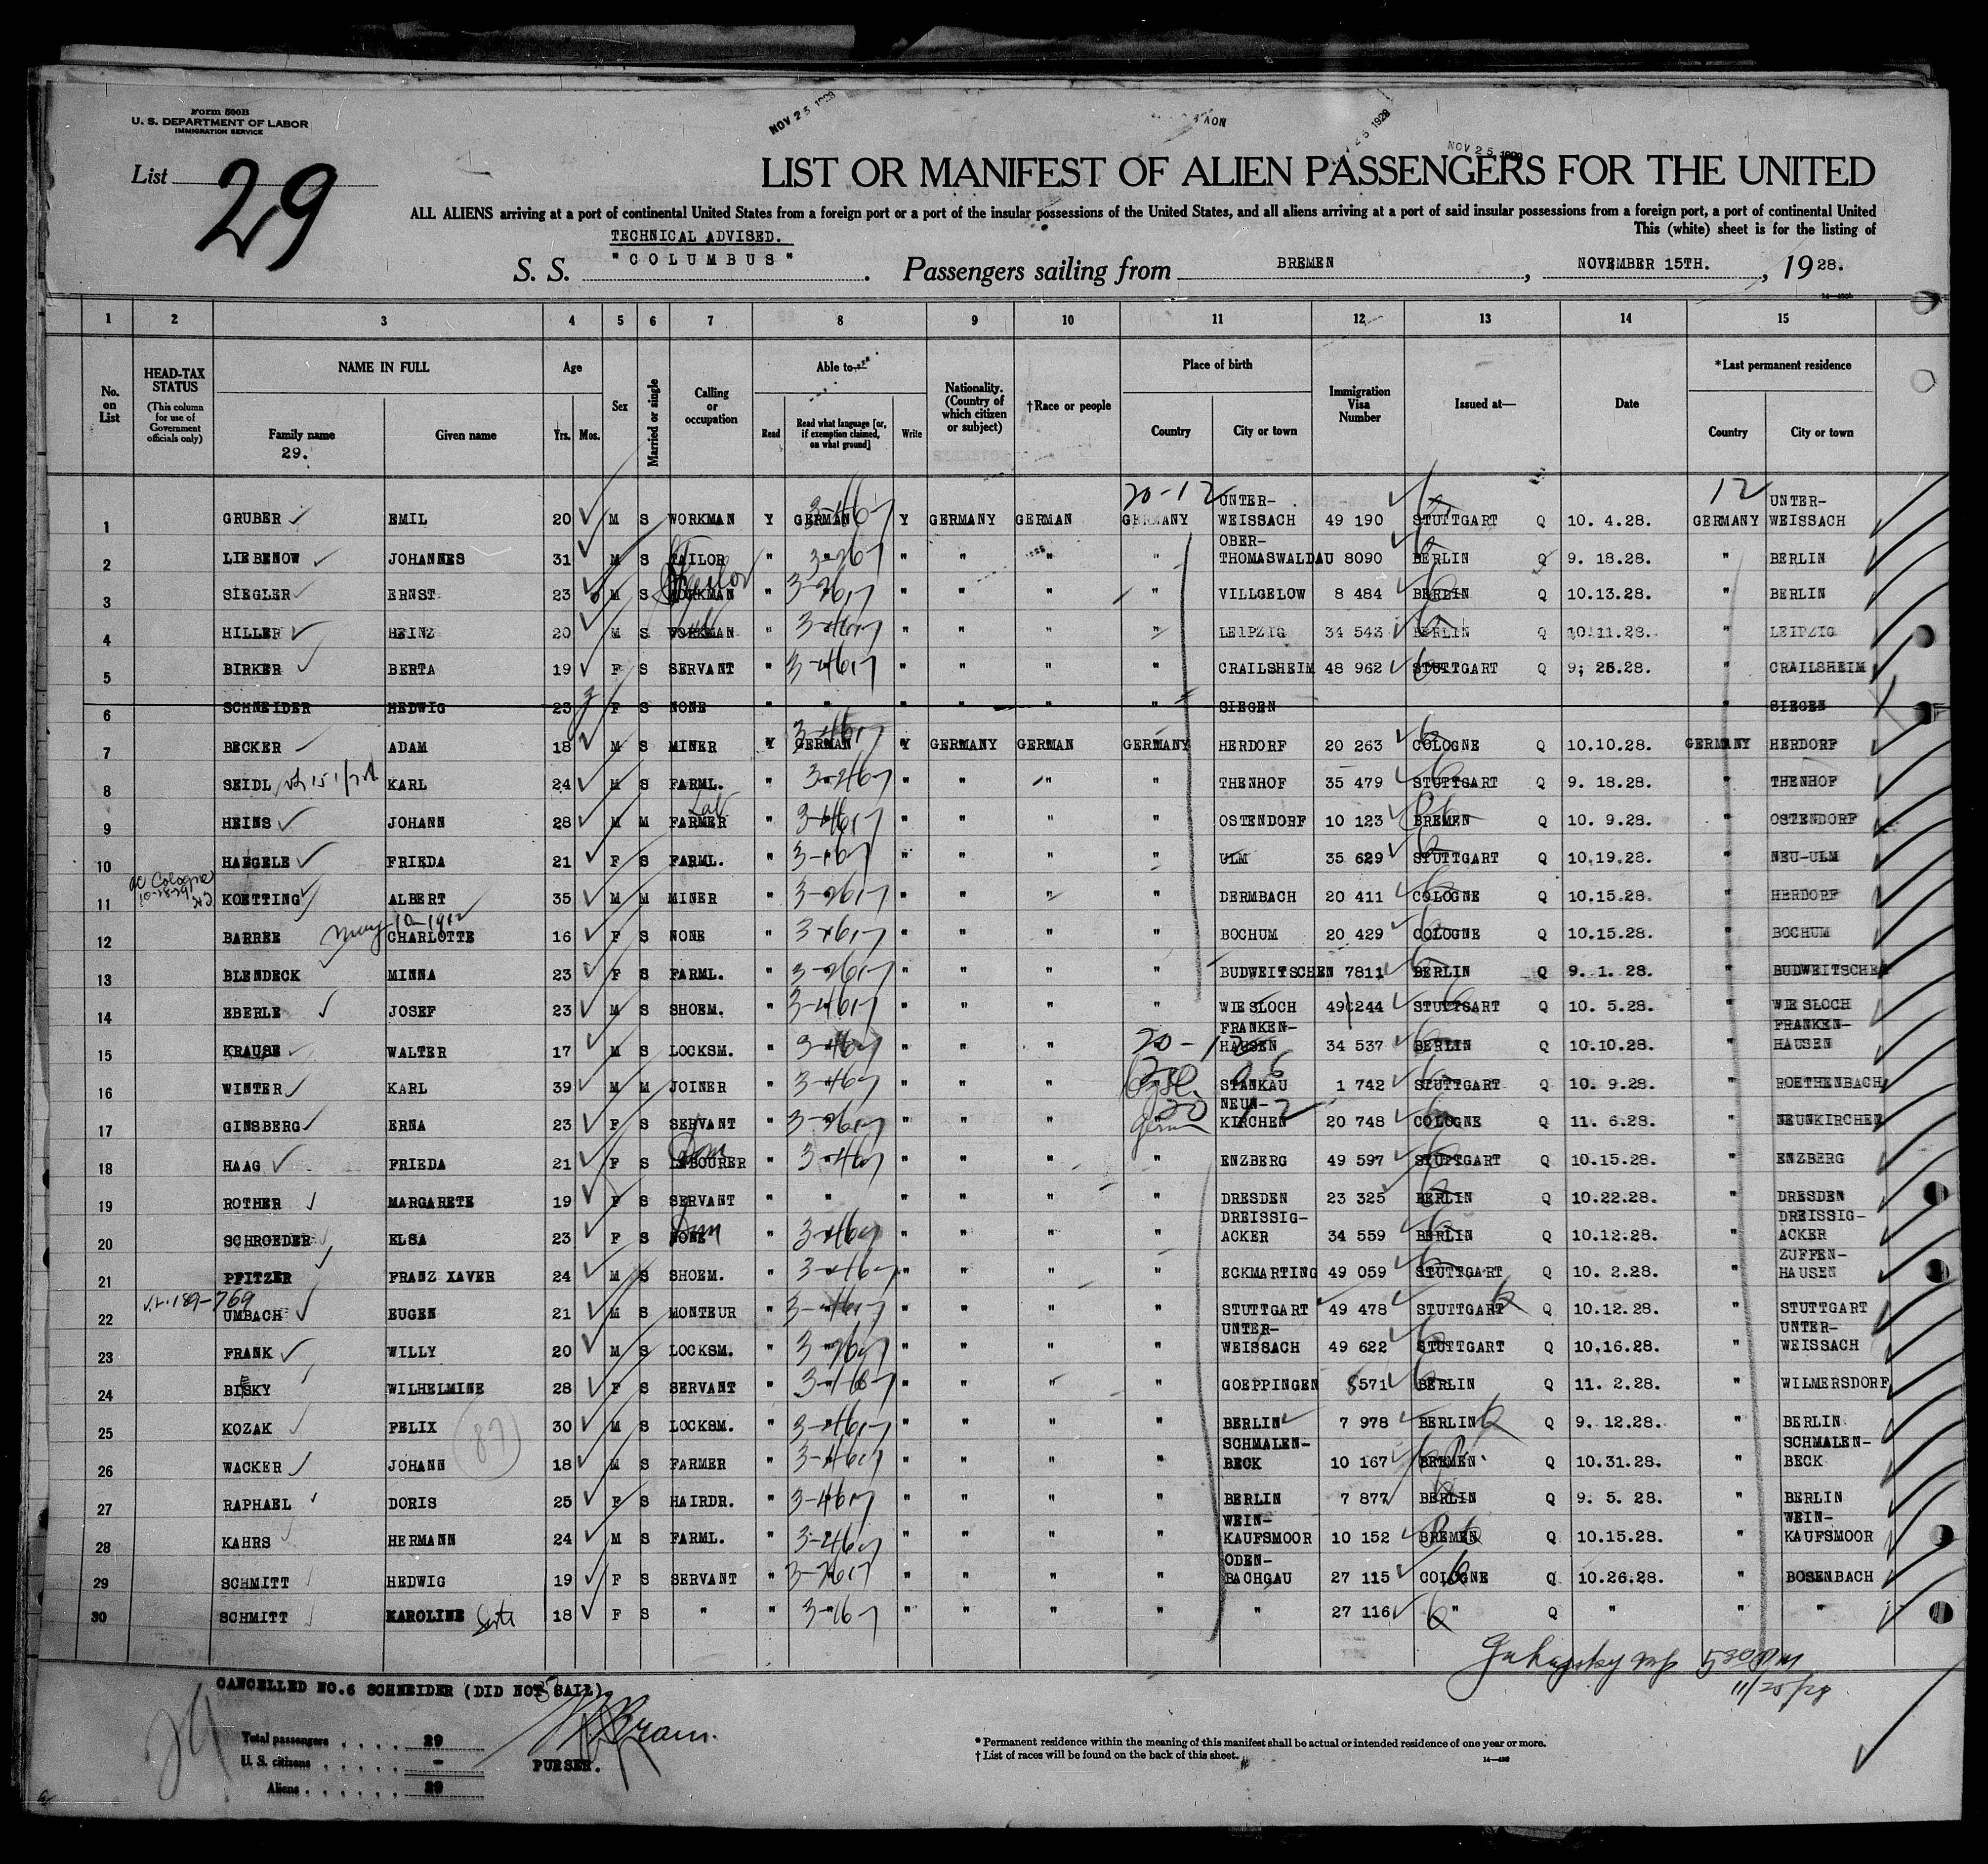 Form 500B
U. S. DEPARTMENT OF LABOR
IMMIGRATION SERVICE
NOV 25 1928
NOV 25 1928
List 29
LIST OR MANIFEST OF ALIEN PASSENGERS FOR THE UNITED
ALL ALIENS arriving at a port of continental United States from a foreign port or a port of the insular possessions of the United States, and all aliens arriving at a port of said insular possessions from a foreign port, a port of continental United
This (white) sheet is for the listing of
TECHNICAL ADVISED.
S. S. "COLUMBUS". Passengers sailing from BREMEN, NOVEMBER 15TH., 1928.
1 2 3 4 5 6 7 8 9 10 11 12 13 14 15
No. on List
HEAD-TAX STATUS (This column for use of Government officials only)
NAME IN FULL
Family name
29.
Given name
Age
Yrs. Mos.
Sex
Married or single
Calling or occupation
Able to—
Read
Read what language [or, if exemption claimed, on what ground]
Write
Nationality. (Country of which citizen or subject)
†Race or people
Place of birth
Country
City or town
Immigration Visa Number
Issued at—
Date
*Last permanent residence
Country
City or town
20-12 12
1 GRUBER EMIL 20 M S WORKMAN Y GERMAN Y GERMANY GERMAN GERMANY UNTER-WEISSACH 49 190 STUTTGART Q 10. 4.28. GERMANY UNTER-WEISSACH
2 LIEBENOW JOHANNES 31 M S TAILOR " " " " " " OBER-THOMASWALDAU 8090 BERLIN Q 9. 18.28. " BERLIN
3 SIEGLER ERNST 23 M S WORKMAN " " " " " VILLGELOW 8 484 BERLIN Q 10.13.28. " BERLIN
4 HILLER HEINZ 20 M S WORKMAN " " " " " LEIPZIG 34 543 BERLIN Q 10.11.28. " LEIPZIG
5 BIRKER BERTA 19 F S SERVANT " " " " " CRAILSHEIM 48 962 STUTTGART Q 9; 26.28. " CRAILSHEIM
6 SCHNEIDER HEDWIG 23 F S NONE " " " " " " SIEGEN " SIEGEN
7 BECKER ADAM 18 M S MINER Y GERMAN Y GERMANY GERMAN GERMANY HERDORF 20 263 COLOGNE Q 10.10.28. GERMANY HERDORF
8 SEIDL KARL 24 M S FARML. " " " " " THENHOF 35 479 STUTTGART Q 9. 18.28. " THENHOF
9 HEINS JOHANN 28 M M FARMER Lab " " " " " OSTENDORF 10 123 BREMEN Q 10. 9.28. " OSTENDORF
10 HAEGELE FRIEDA 21 F S FARML. " " " " " ULM 35 629 STUTTGART Q 10.19.28. " NEU-ULM
11 KOETTING ALBERT 35 M M MINER " " " " " DERMBACH 20 411 COLOGNE Q 10.15.28. " HERDORF
May 10-1912
12 BARREE CHARLOTTE 16 F S NONE " " " " " BOCHUM 20 429 COLOGNE Q 10.15.28. " BOCHUM
13 BLENDECK MINNA 23 F S FARML. " " " " " BUDWEITSCHEN 7811 BERLIN Q 9. 1. 28. " BUDWEITSCHEN
14 EBERLE JOSEF 23 M S SHOEM. " " " " " WIESLOCH 49 244 STUTTGART Q 10. 5.28. " WIESLOCH
15 KRAUSE WALTER 17 M S LOCKSM. " " " " 20-12 FRANKEN-HAUSEN 34 537 BERLIN Q 10.10.28. " FRANKEN-HAUSEN
16 WINTER KARL 39 M M JOINER " " " " STANKAU 1 742 STUTTGART Q 10. 9.28. " ROETHENBACH
17 GINSBERG ERNA 23 F S SERVANT " " " " NEUN-KIRCHEN 20 748 COLOGNE Q 11. 6.28. " NEUNKIRCHEN
18 HAAG FRIEDA 21 F S LABOURER Dom " " " " " ENZBERG 49 597 STUTTGART Q 10.15.28. " ENZBERG
19 ROTHER MARGARETE 19 F S SERVANT " " " " " " DRESDEN 23 325 BERLIN Q 10.22.28. " DRESDEN
20 SCHROEDER ELSA 23 F S NONE Dom " " " " " DREISSIG-ACKER 34 559 BERLIN Q 10.12.28. " DREISSIG-ACKER
21 PFITZER FRANZ XAVER 24 M S SHOEM. " " " " " ECKMARTING 49 059 STUTTGART Q 10. 2.28. " ZUFFEN-HAUSEN
22 UMBACH EUGEN 21 M S MONTEUR " " " " " STUTTGART 49 478 STUTTGART Q 10.12.28. " STUTTGART
23 FRANK WILLY 20 M S LOCKSM. " " " " " UNTER-WEISSACH 49 622 STUTTGART Q 10.16.28. " UNTER-WEISSACH
24 BISKY WILHELMINE 28 F S SERVANT " " " " " GOEPPINGEN 8571 BERLIN Q 11. 2.28. " WILMERSDORF
25 KOZAK FELIX 30 M S LOCKSM. " " " " " BERLIN 7 978 BERLIN Q 9. 12.28. " BERLIN
26 WACKER JOHANN 18 M S FARMER " " " " " SCHMALEN-BECK 10 167 BREMEN Q 10.31.28. " SCHMALEN-BECK
27 RAPHAEL DORIS 25 F S HAIRDR. " " " " " BERLIN 7 877 BERLIN Q 9. 5. 28. " BERLIN
28 KAHRS HERMANN 24 M S FARML. " " " " " WEIN-KAUFSMOOR 10 152 BREMEN Q 10.15.28. " WEIN-KAUFSMOOR
29 SCHMITT HEDWIG 19 F S SERVANT " " " " " ODEN-BACHGAU 27 115 COLOGNE Q 10.26.28. " BOSENBACH
30 SCHMITT KAROLINE 18 F S " " " " " " " 27 116 " Q " " "
5 30 PM
11/25/28
CANCELLED NO.6 SCHNEIDER (DID NOT SAIL).
29
Total passengers . . . . 29
U. S. citizens . . . . . -
Aliens . . . . . . 29
PURSER.
* Permanent residence within the meaning of this manifest shall be actual or intended residence of one year or more.
† List of races will be found on the back of this sheet.